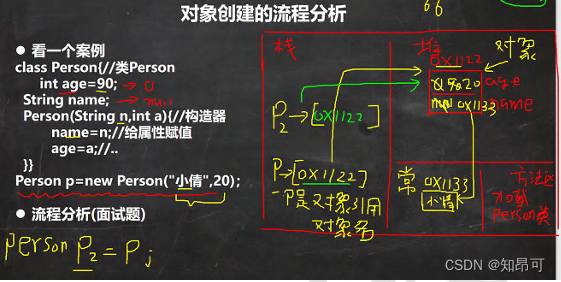 对象创建的流程分析
66
● 看一个案例
class Person{//类Person
int age=90; → 0
String name; → null
Person(String n,int a){//构造器
name=n;//给属性赋值
age=a;//..
}}
Person p=new Person("小倩",20);
● 流程分析(面试题)
Person P2=P;
栈
P2→[0x1122]
P→[0x1122]
对象引用
对象名
堆
对象
0x1122
20 age
null 0x1133 name
常
0x1133
小倩
方法区
加载
Person类
CSDN @知昂可